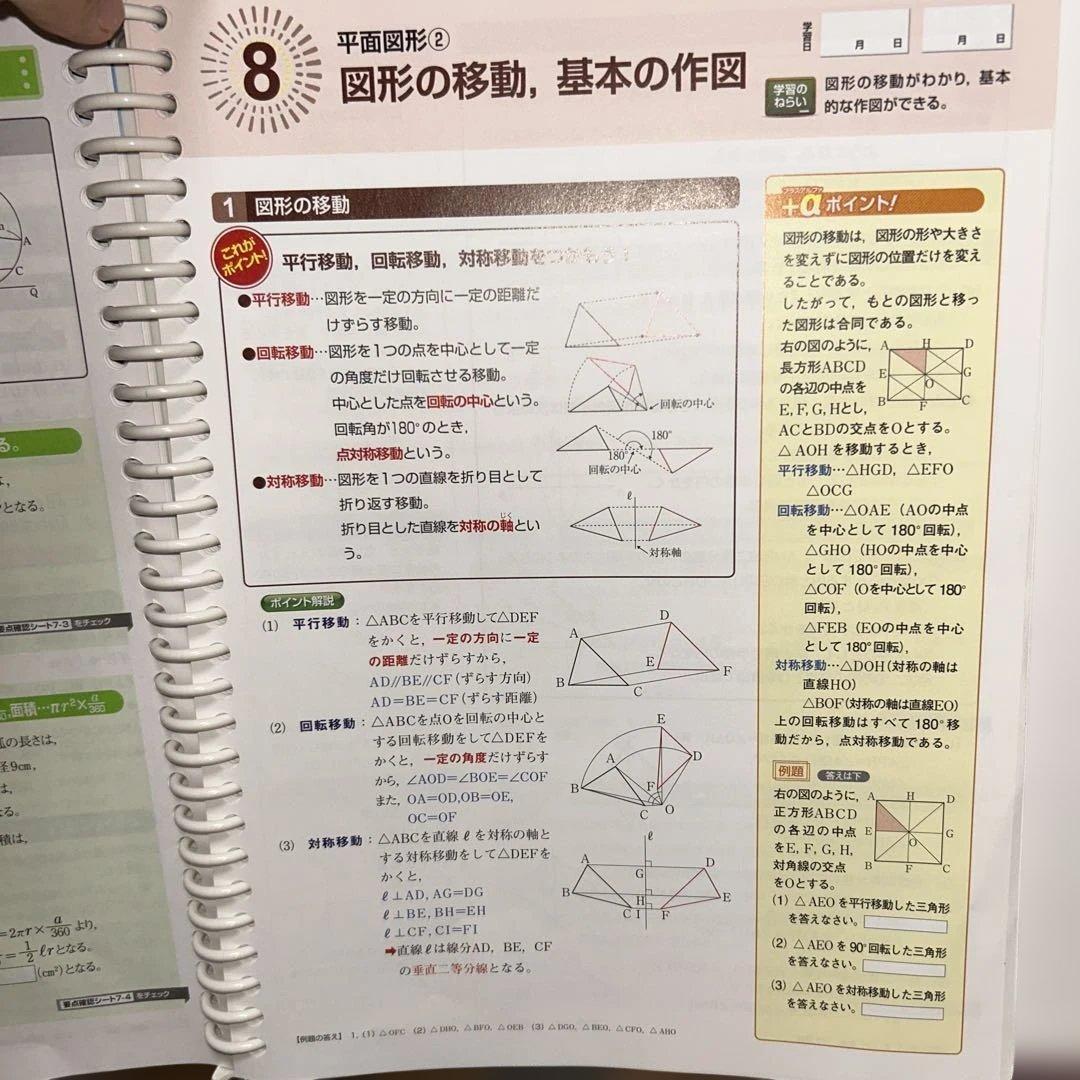 8
平面図形②
図形の移動，基本の作図
学習日
月 日
月 日
学習のねらい
図形の移動がわかり，基本
的な作図ができる。
1 図形の移動
これがポイント!
平行移動，回転移動，対称移動を
●平行移動…図形を一定の方向に一定の距離だ
けずらす移動。
●回転移動…図形を1つの点を中心として一定
の角度だけ回転させる移動。
中心とした点を回転の中心という。
回転角が180°のとき，
点対称移動という。
回転の中心
180°
180°
回転の中心
●対称移動…図形を1つの直線を折り目として
折り返す移動。
折り目とした直線を対称の軸とい
じく
う。
ℓ
対称軸
ポイント解説
(1) 平行移動：△ABCを平行移動して△DEF
をかくと，一定の方向に一定
の距離だけずらすから，
AD//BE//CF(ずらす方向)
AD=BE=CF(ずらす距離)
A
D
E
F
B
C
(2) 回転移動：△ABCを点Oを回転の中心と
する回転移動をして△DEFを
かくと，一定の角度だけずらす
から，∠AOD=∠BOE=∠COF
また，OA=OD,OB=OE,
OC=OF
E
A
D
B
F
C
O
(3) 対称移動：△ABCを直線ℓを対称の軸と
する対称移動をして△DEFを
かくと，
ℓ⊥AD, AG=DG
ℓ⊥BE, BH=EH
ℓ⊥CF, CI=FI
➡直線ℓは線分AD，BE，CF
の垂直二等分線となる。
ℓ
A
D
G
B
H
E
C
I
F
【例題の答え】 1. (1) △OFC (2) △DHO, △BFO, △OEB (3) △DGO, △BEO, △CFO, △AHO
プラスアルファ
+αポイント!
図形の移動は，図形の形や大きさ
を変えずに図形の位置だけを変え
ることである。
したがって，もとの図形と移っ
た図形は合同である。
右の図のように，
長方形ABCD
の各辺の中点を
E, F, G, Hとし，
ACとBDの交点をOとする。
△AOHを移動するとき，
A
H
D
E
G
O
B
F
C
平行移動…△HGD，△EFO
△OCG
回転移動…△OAE（AOの中点
を中心として180°回転），
△GHO（HOの中点を中心
として180°回転），
△COF（Oを中心として180°
回転），
△FEB（EOの中点を中心
として180°回転），
対称移動…△DOH(対称の軸は
直線HO)
△BOF(対称の軸は直線EO)
上の回転移動はすべて180°移
動だから，点対称移動である。
例題
答えは下
右の図のように，
正方形ABCD
の各辺の中点
をE, F, G, H,
対角線の交点
をOとする。
A
H
D
E
G
O
B
F
C
(1) △AEOを平行移動した三角形
を答えなさい。
(2) △AEOを90°回転した三角形
を答えなさい。
(3) △AEOを対称移動した三角形
を答えなさい。
A
C
Q
る。
となる。
要点確認シート7-3 をチェック
面積…πr²×a/360
弧の長さは，
径9cm，
は，
る。
積は，
=2πr×a/360より，
=1/2ℓrとなる。
(cm²)となる。
要点確認シート7-4 をチェック